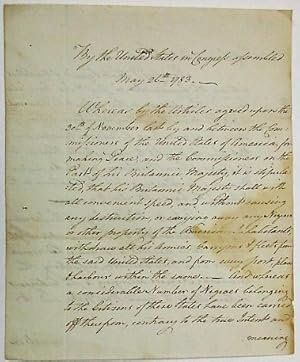 By the United States in Congress assembled
May 26th 1783.
Whereas by the Articles agreed upon the
30th of November last by and between the Com-
missioners of the United States of America, for
making Peace, and the Commissioner on the
Part of his Britannic Majesty, it is stipula-
ted, that his Britannic Majesty shall with
all convenient speed, and without causing
any destruction, or carrying away any Negroes
or other property of the American Inhabitants,
withdraw all his Armies, Garrisons & fleets from
the said United States, and from every port, place
& harbour within the same. And whereas
a considerable Number of Negroes belonging
to the Citizens of these States have been carried
off therefrom, contrary to the true Intent and
meaning